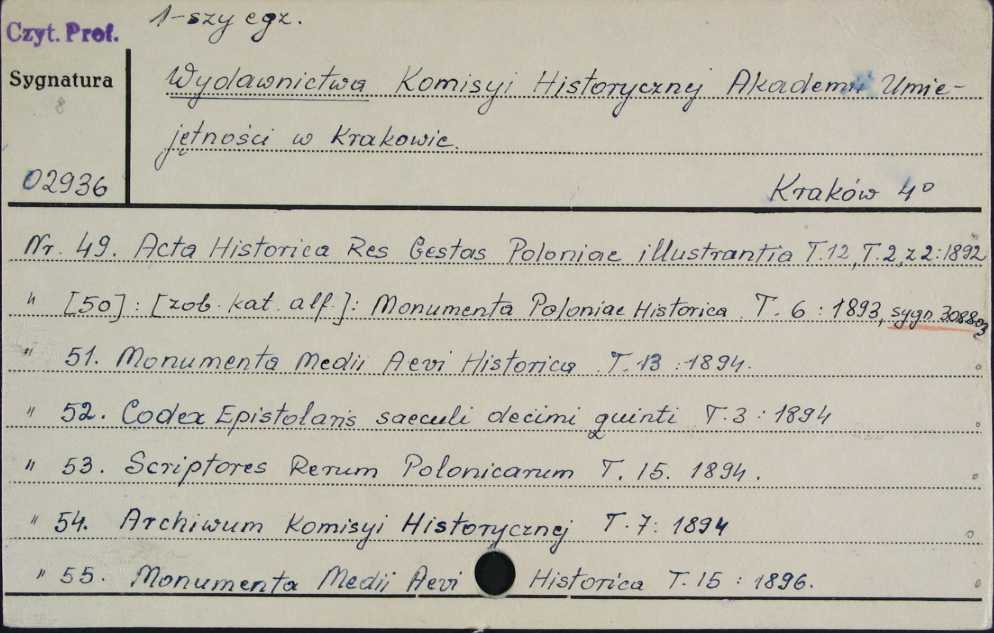 1-szy egz.
Czyt. Prof.
Sygnatura
8
02936
Wydawnictwa Komisyi Historycznej Akademii Umie-
jętności w Krakowie.
Kraków 4º
Nr. 49. Acta Historica Res Gestas Poloniae illustrantia T.12, T.2, z 2:1892
" [50]: [zob. kat. alf.]: Monumenta Poloniae Historica T. 6 : 1893, sygn. 308803
" 51. Monumenta Medii Aevi Historica T. 13 : 1894.
" 52. Codex Epistolaris saeculi decimi quinti T. 3 : 1894
" 53. Scriptores Rerum Polonicarum T. 15. 1894.
" 54. Archiwum Komisyi Historycznej T. 7: 1894
" 55. Monumenta Medii Aevi Historica T. 15 : 1896.